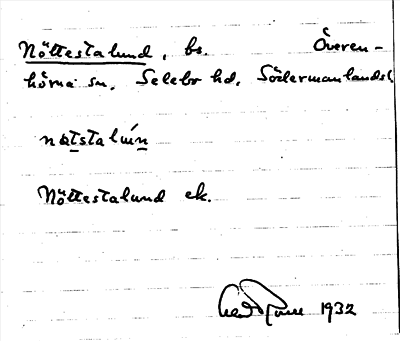 Nöttestalund, bs. Överen-
hörna sn, Selebo hd, Södermanlands l.
nøtstalún
Nöttestalund ek.
1932